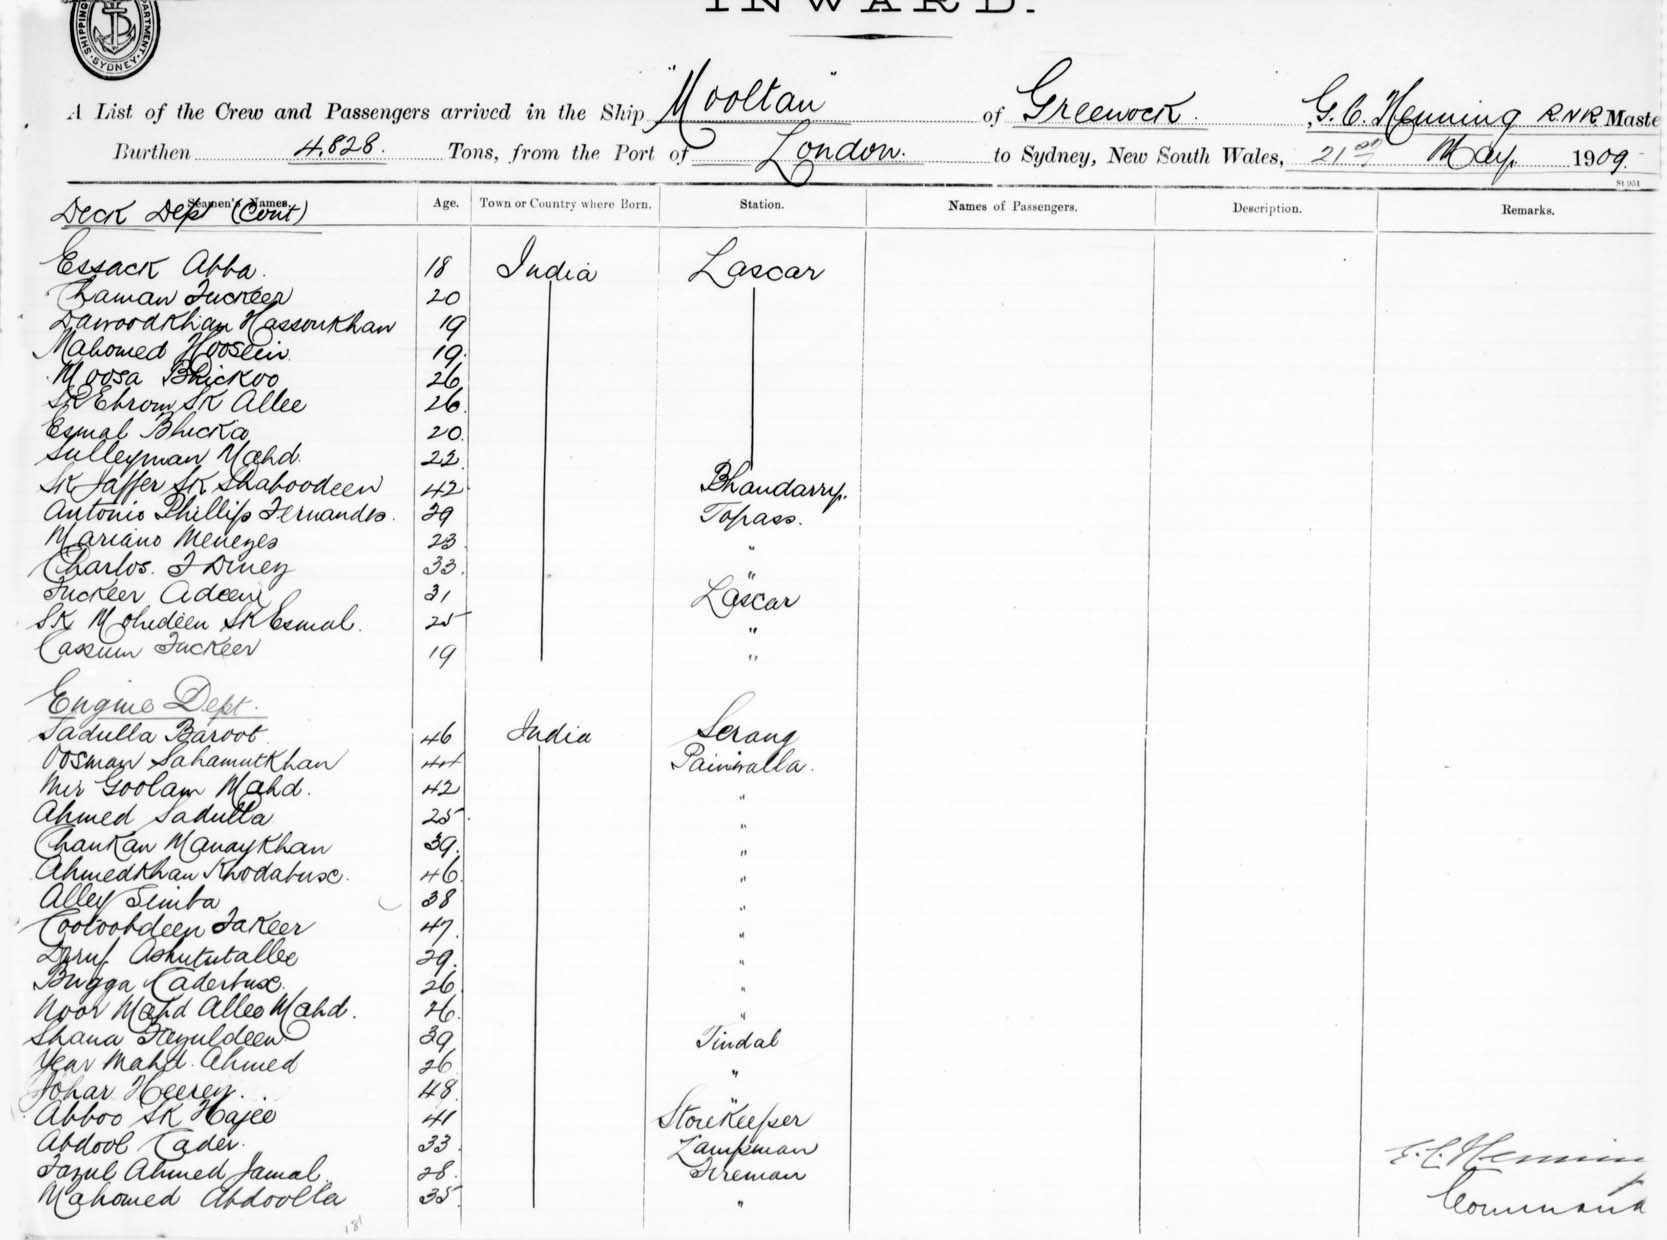 INWARD.
SHIPPING DEPARTMENT. SYDNEY.
A List of the Crew and Passengers arrived in the Ship "Mooltan" of Greenock. G. C. Henning R.N.R. Maste
Burthen 4,828. Tons, from the Port of London. to Sydney, New South Wales, 21st May. 1909.
St 951
Seamen's Names. Age. Town or Country where Born. Station. Names of Passengers. Description. Remarks.
Deck Dept (Cont)
Essack Abba. 18 India Lascar
Chaman Fuckeer 20
Dawoodkhan Hassonkhan 19
Mahomed Hoosein 19.
Moosa Bhickoo 26
SK Ebrom SK Allee 26.
Esmal Bhicka 20.
Sulleyman Mahd. 22.
SK Jaffer SK Shaboodeen 42 Bhandarry.
Antonio Phillip Fernandes. 29 Topass.
Mariano Menezes 23 "
Charlos. F Diney 33. "
Fuckeer Adeen 31 Lascar
SK Mohideen SK Esmal. 25 "
Cassum Fuckeer 19 "
Engine Dept.
Sadulla Baroot. 46 India Serang
Oosman Sahamutkhan 44 Painiwalla.
Mir Goolam Mahd. 42 "
Ahmed Sadulla 25. "
Chankan Manaykhan 39. "
Ahmedkhan Khodabuse. 46. "
Alley Simba 38 "
Cootoobdeen Fakeer 47. "
Ashututallee 29. "
Bugga Caderbux. 26 "
Noor Mahd Allee Mahd. 26. "
Shana Fazuldeen 39 Tindal
Year Mahd. Ahmed 26 "
Johar Heerey. 48. "
Abboo SK Hajee 41 Storekeeper
Abdool Cader. 33. Lampman
Fazul Ahmed Jamal. 28. Fireman
Mahomed Abdoolla 35. "
G. C. Henning
Command
181